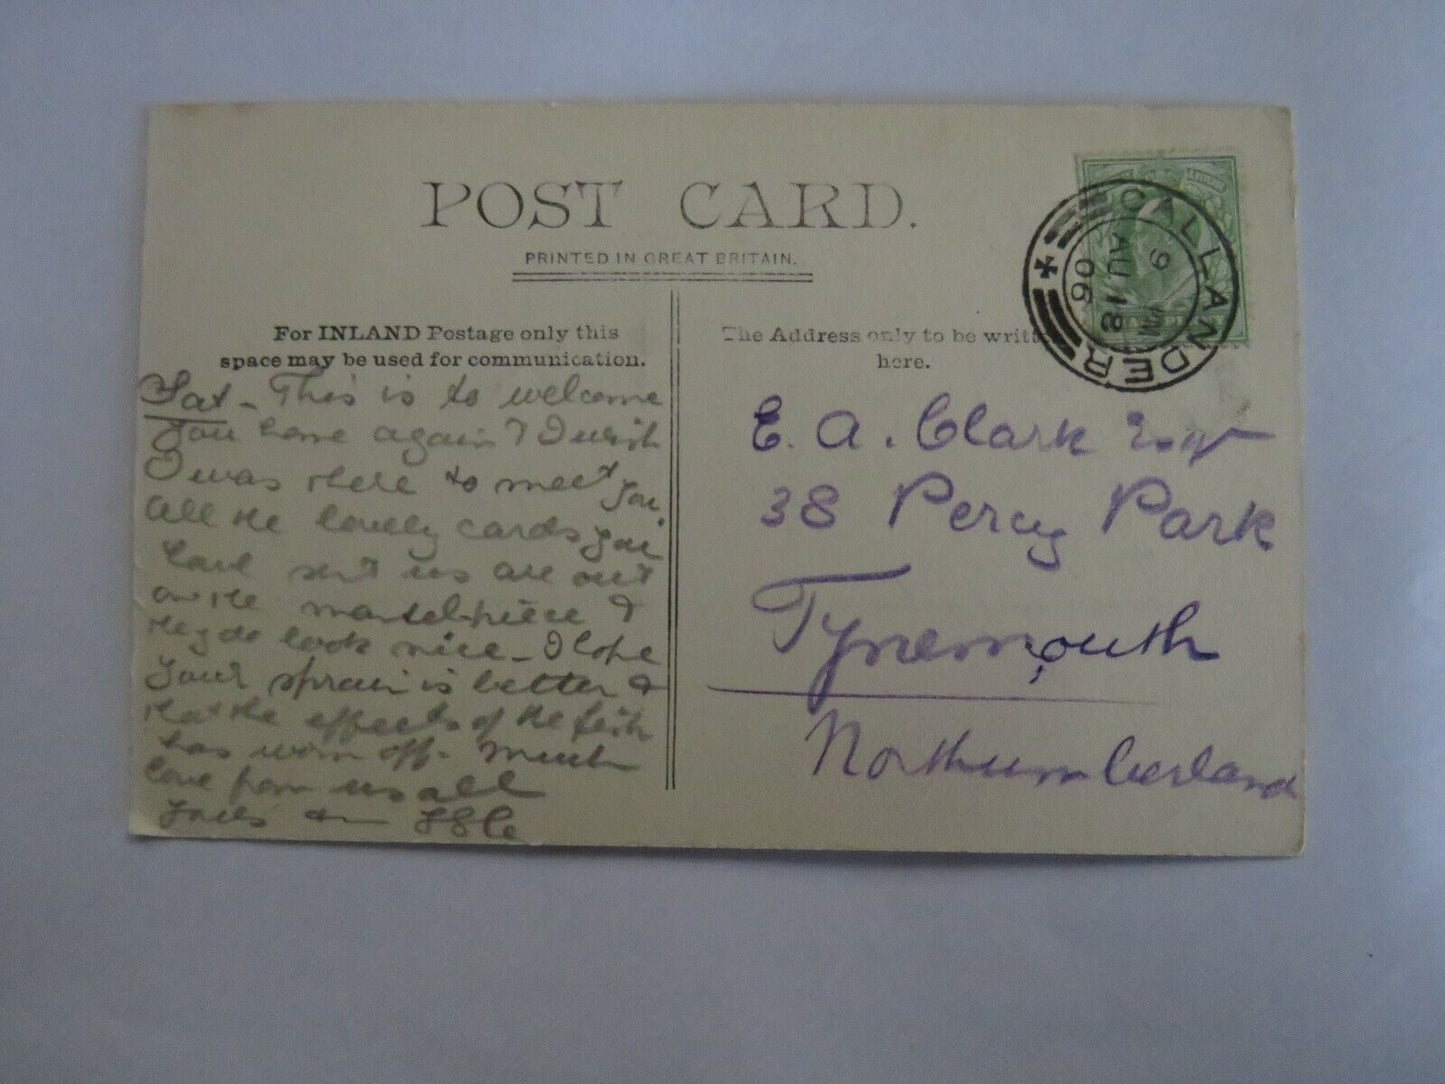 POST CARD.
PRINTED IN GREAT BRITAIN.
For INLAND Postage only this
space may be used for communication.
The Address only to be writt
here.
CALLANDER
9
AU 18
06
Sat - This is to welcome
you home again & I wish
I was there to meet you.
All the lovely cards you
have sent us are out
on the mantelpiece &
they do look nice - I hope
your sprain is better &
that the effects of the fish
has worn off - Much
love from us all
E. A. Clark Esqr
38 Percy Park
Tynemouth
Northumberland